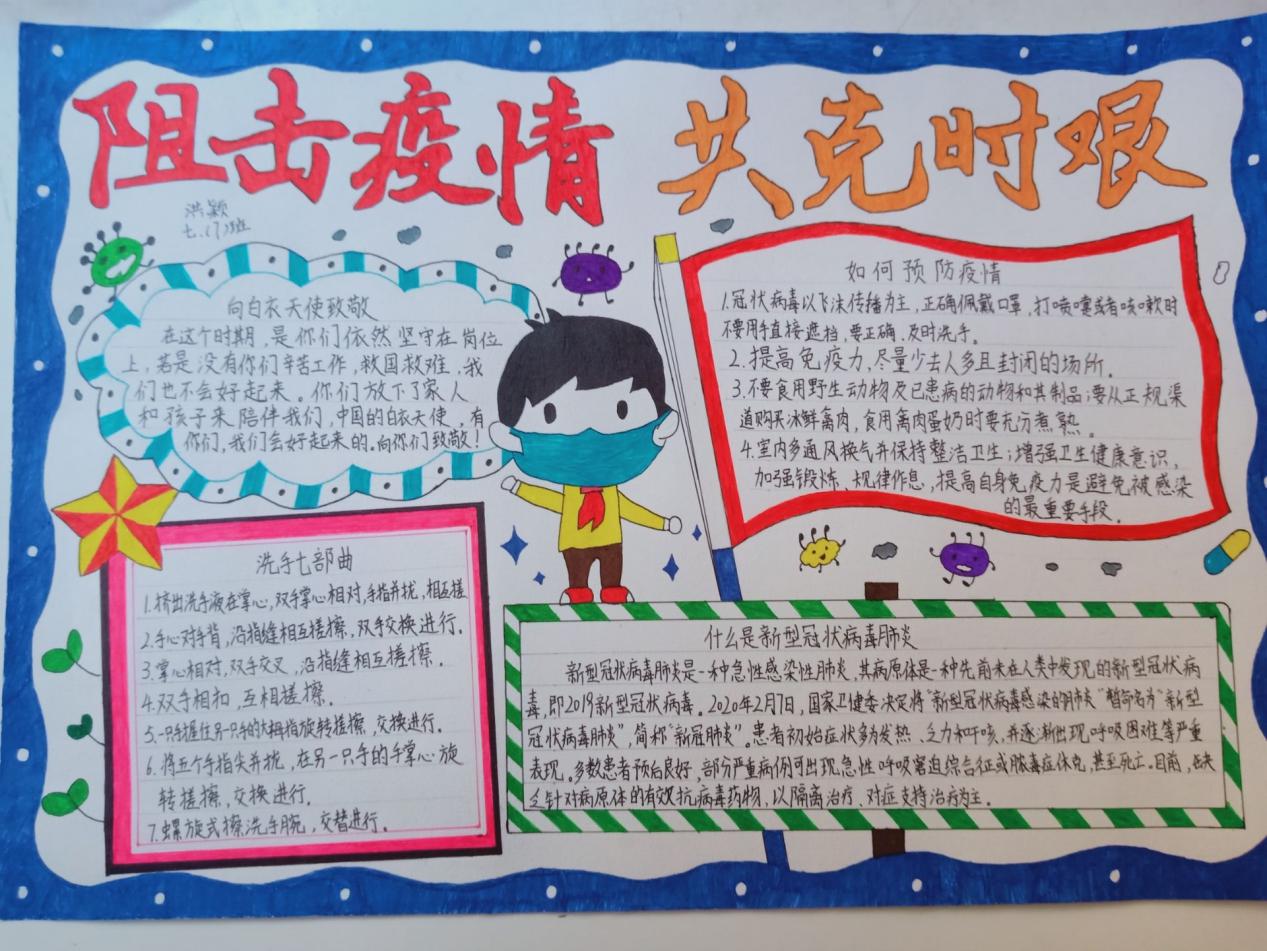 阻击疫情 共克时艰
洪颖
七.(7)班
向白衣天使致敬
在这个时期,是你们依然坚守在岗位
上,若是没有你们辛苦工作,救国救难,我
们也不会好起来。你们放下了家人
和孩子来陪伴我们,中国的白衣天使,有
你们,我们会好起来的.向你们致敬!
如何预防疫情
1.冠状病毒以飞沫传播为主,正确佩戴口罩,打喷嚏或者咳嗽时
不要用手直接遮挡,要正确,及时洗手。
2.提高免疫力,尽量少去人多且封闭的场所.
3.不要食用野生动物及已患病的动物和其制品;要从正规渠
道购买冰鲜禽肉,食用禽肉蛋奶时要充分煮熟。
4.室内多通风换气并保持整洁卫生;增强卫生健康意识,
加强锻炼、规律作息,提高自身免疫力是避免被感染
的最重要手段。
洗手七部曲
1.挤出洗手液在掌心,双手掌心相对,手指并拢,相互搓
2.手心对手背,沿指缝相互搓擦,双手交换进行.
3.掌心相对,双手交叉,沿指缝相互搓擦.
4.双手相扣,互相搓擦.
5.一只手握住另一只手的大拇指旋转搓擦,交换进行.
6.将五个手指尖并拢,在另一只手的手掌心旋
转搓擦,交换进行.
7.螺旋式擦洗手腕,交替进行.
什么是新型冠状病毒肺炎
新型冠状病毒肺炎是一种急性感染性肺炎,其病原体是一种先前未在人类中发现的新型冠状病
毒,即2019新型冠状病毒。2020年2月7日,国家卫健委决定将"新型冠状病毒感染的肺炎"暂命名为"新型
冠状病毒肺炎",简称"新冠肺炎"。患者初始症状多为发热、乏力和干咳,并逐渐出现呼吸困难等严重
表现。多数患者预后良好,部分严重病例可出现急性呼吸窘迫综合征或脓毒症休克,甚至死亡.目前,缺
乏针对病原体的有效抗病毒药物,以隔离治疗、对症支持治疗为主.